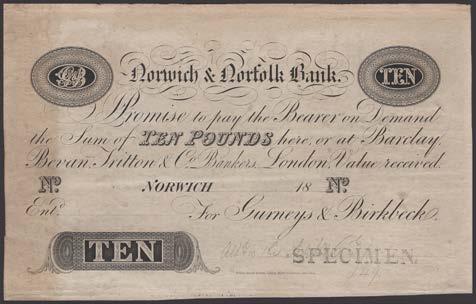 GB
Norwich & Norfolk Bank.
TEN
I Promise to pay the Bearer on Demand
the Sum of TEN POUNDS here, or at Barclay,
Bevan, Tritton & Co. Bankers, London. Value received.
No. NORWICH 18 No.
Entd. For Gurneys & Birkbeck.
TEN
SPECIMEN.